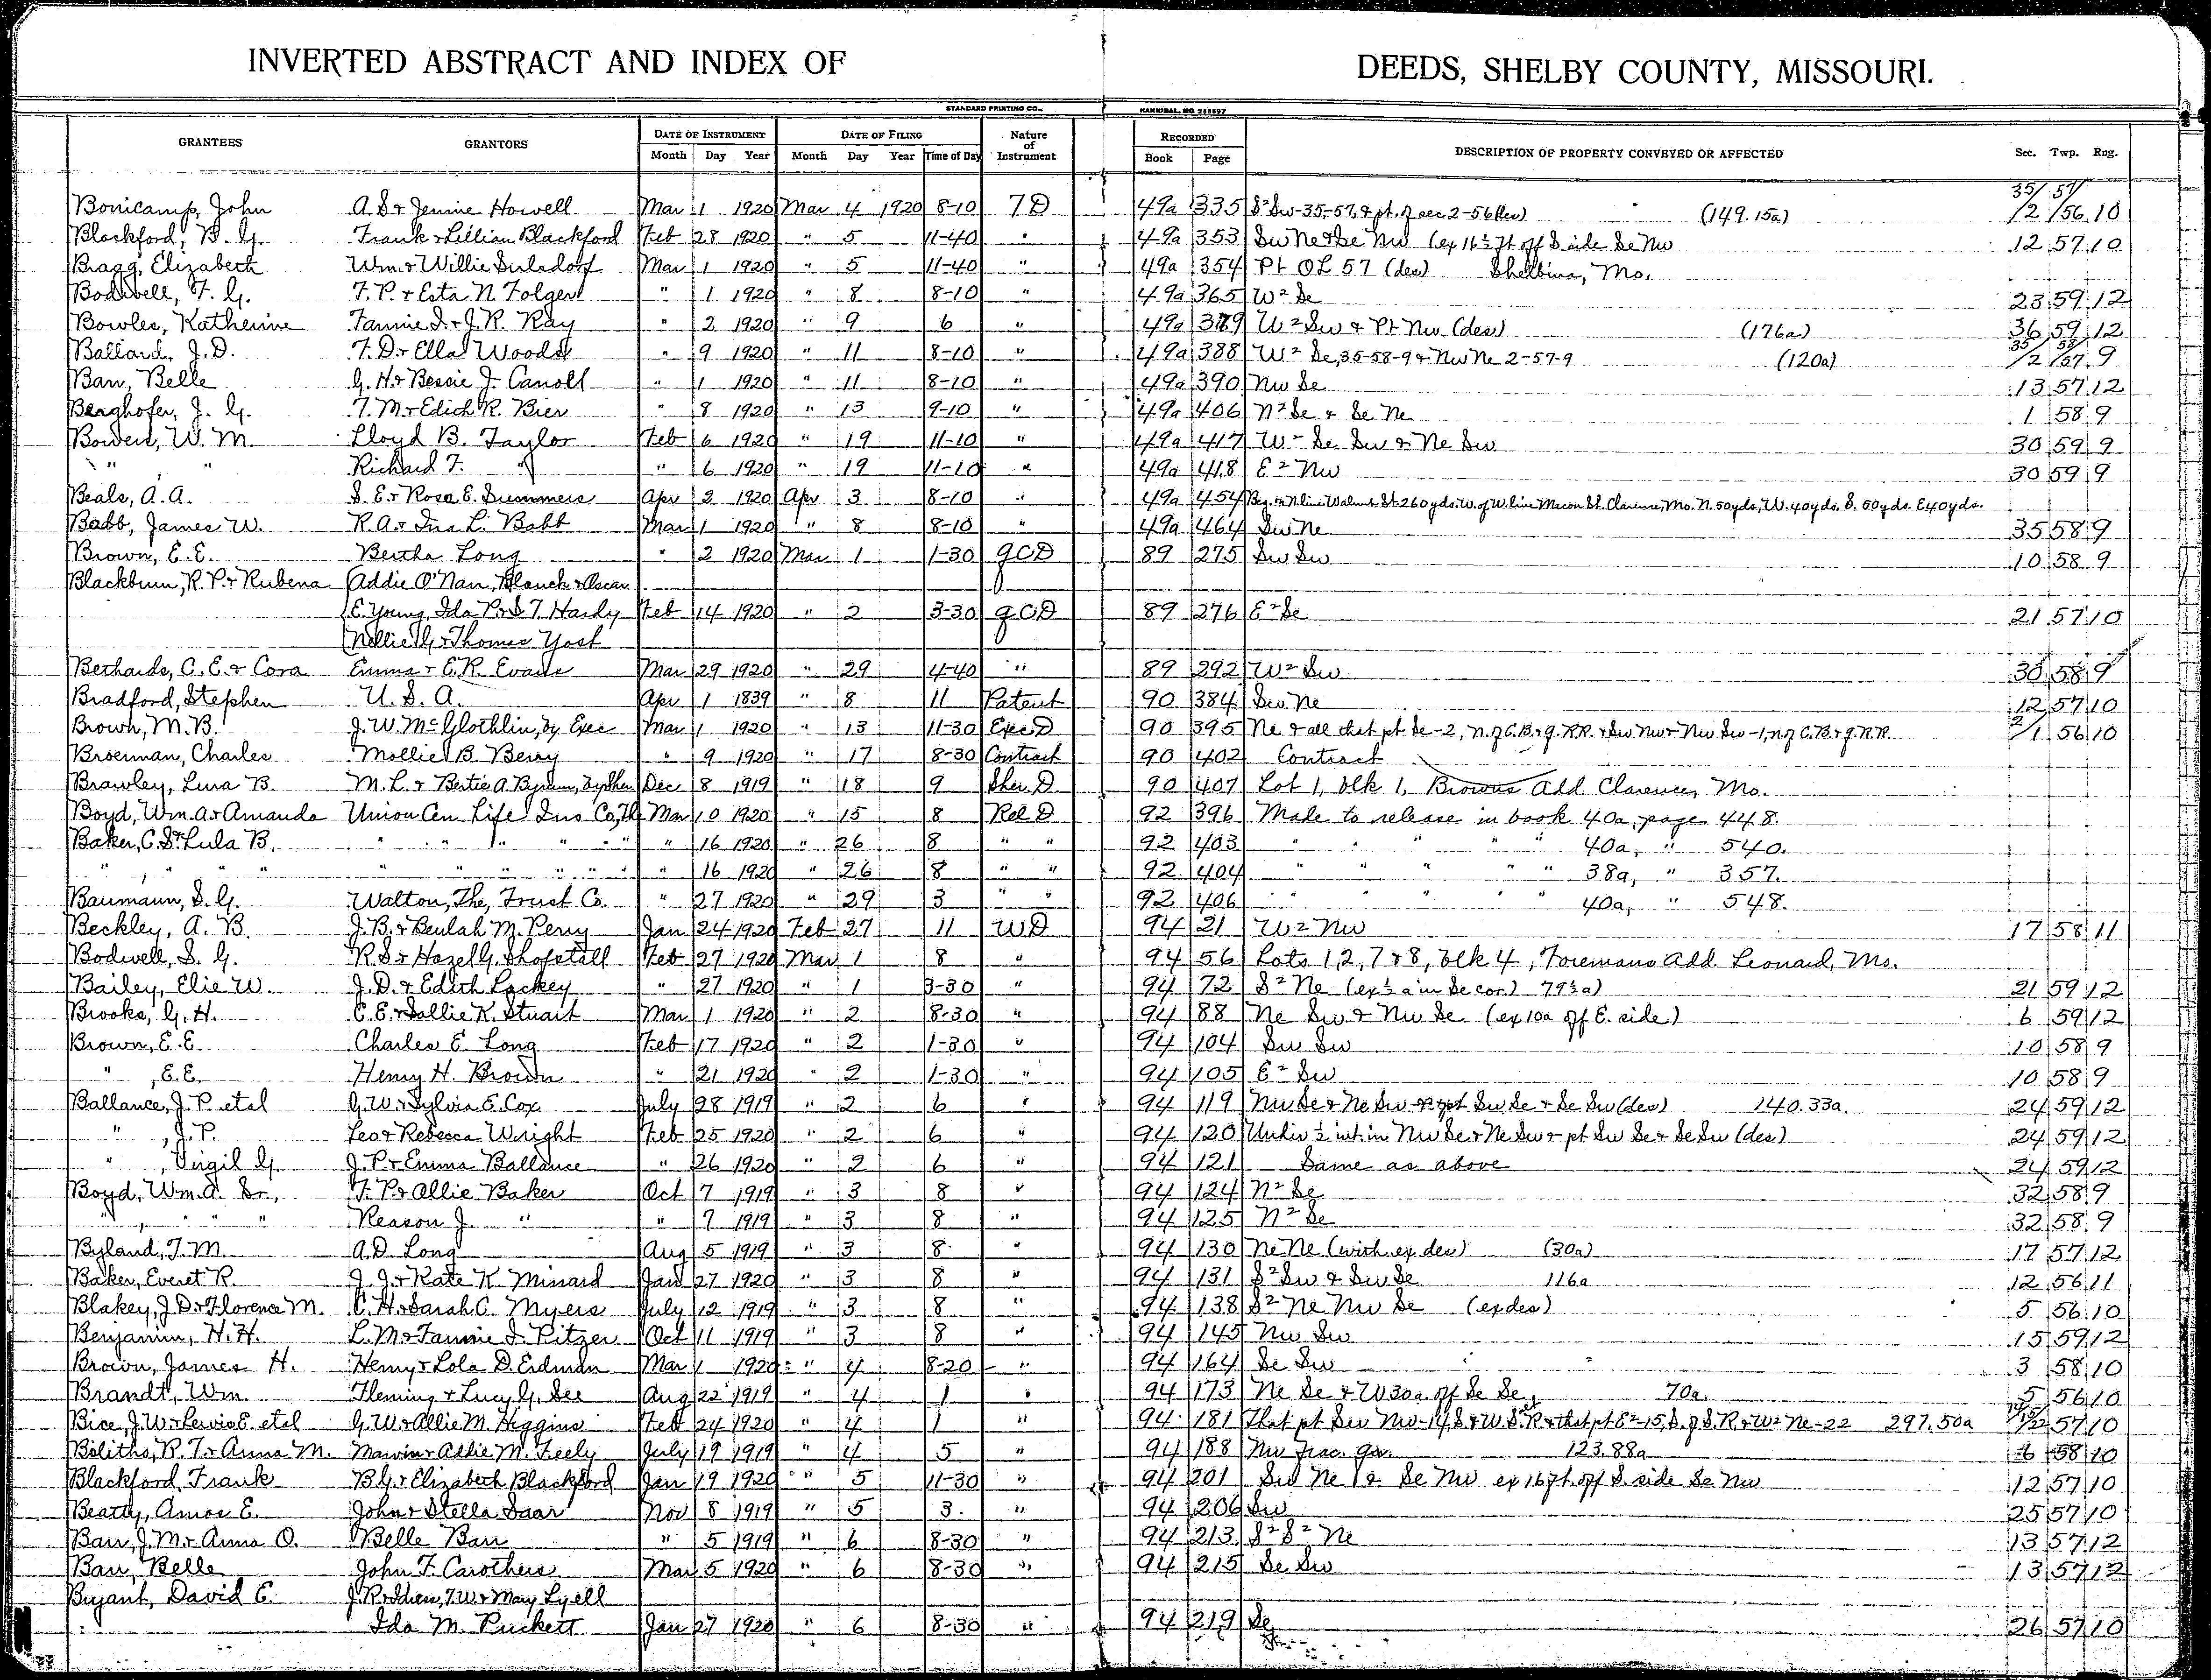 INVERTED ABSTRACT AND INDEX OF DEEDS, SHELBY COUNTY, MISSOURI.
STANDARD PRINTING CO., HANNIBAL, MO
GRANTEES GRANTORS DATE OF INSTRUMENT DATE OF FILING Nature of Instrument RECORDED DESCRIPTION OF PROPERTY CONVEYED OR AFFECTED Sec. Twp. Rng.
Month Day Year Month Day Year Time of Day Book Page
35/ 57/
Bonicamp, John A.S. + Jennie Howell Mar 1 1920 Mar 4 1920 8-10 TD 49a 335 S² Sw-35-57, & pt. of sec 2-56 (des) (149.15a) /2 /56 10
Blackford, B. G. Frank + Lillian Blackford Feb 28 1920 " 5 11-40 " 49a 353 Sw Ne & Se Nw (ex 16½ ft off S side Se Nw 12 57 10
Bragg, Elizabeth Wm. + Willie Mar 1 1920 " 5 11-40 " 49a 354 Pt OL 57 (des) Shelbina, Mo.
Bodwell, F. G. F. P. + Esta N. Folger " 1 1920 " 8 8-10 " 49a 365 W² Se 23 59 12
Bowles, Katherine Fannie I. + J. R. Ray " 2 1920 " 9 6 " 49a 379 W² Sw & Pt Nw (des) (176a) 36 59 12
Ballard, J. D. F. D. + Ella Woods " 9 1920 " 11 8-10 " 49a 388 W² Se, 35-58-9 & Nw Ne 2-57-9 (120a) 35/2 58/57 9
Barr, Belle G. H. + Bessie J. Carroll " 1 1920 " 11 8-10 " 49a 390 Nw Se 13 57 12
Berghofer, J. G. T. M. + Edith R. Bier " 8 1920 " 13 9-10 " 49a 406 N² Se & Se Ne 1 58 9
Bowers, W. M. Lloyd B. Taylor Feb 6 1920 " 19 11-10 " 49a 417 W² Se Sw & Ne Sw 30 59 9
" " Richard F. " " 6 1920 " 19 11-10 " 49a 418 E² Nw 30 59 9
Beals, A. A. S. E. + Rosa E. Summers Apr 2 1920 Apr 3 8-10 " 49a 454 Beg. on N. line Walnut St. 260 yds. W. of W. line Macon St. Clarence, Mo. N. 50 yds, W. 40 yds. S. 50 yds. E 40 yds.
Babb, James W. R. A. + Ina L. Babb Mar 1 1920 " 8 8-10 " 49a 464 Sw Ne 35 58 9
Brown, E. E. Bertha Long " 2 1920 Mar 1 1-30 QCD 89 275 Sw Sw 10 58 9
Blackburn, R. P. + Rubena (Addie O'Nan, Blanch + Oscar
(E. Young, Ida P. + S. T. Hardy Feb 14 1920 " 2 3-30 QCD 89 276 E² Se 21 57 10
(Nellie G. + Thomas Yost
Bethards, C. E. + Cora Emma + E. R. Evans Mar 29 1920 " 29 4-40 " 89 292 W² Sw 30 58 9
Bradford, Stephen U. S. A. Apr 1 1839 " 8 11 Patent 90 384 Sw Ne 12 57 10
Brown, M. B. J. W. McGlothlin, by Exec Mar 1 1920 " 13 11-30 Exec D 90 395 Ne & all that pt Se-2, N. of C.B. & Q. RR. & Sw Nw & Nw Sw-1, N. of C.B. & Q. R.R. 2/1 56 10
Broerman, Charles Mollie B. Berry " 9 1920 " 17 8-30 Contract 90 402 Contract
Brawley, Lura B. M. L. + Bertie A. Byrum, by Sher Dec 8 1919 " 18 9 Sher. D 90 407 Lot 1, blk 1, Browns Add Clarence, Mo.
Boyd, Wm. A. + Amanda Union Cen. Life Ins Co, The Mar 10 1920 " 15 8 Rel D 92 396 Made to release in book 40a, page 448.
Baker, C. S. + Lula B. " " " " " " " 16 1920 " 26 8 " " 92 403 " " " " " 40a, " 540.
" " " " " " " " " " 16 1920 " 26 8 " " 92 404 " " " " " 38a, " 357.
Baumann, S. G. Walton, The, Trust Co. " 27 1920 " 29 3 " " 92 406 " " " " " 40a, " 548.
Beckley, A. B. J. B. + Beulah M. Perry Jan 24 1920 Feb 27 11 WD 94 21 W² Nw 17 58 11
Bodwell, S. G. R. S. + Hazel G. Shofstall Feb 27 1920 Mar 1 8 " 94 56 Lots 1, 2, 7 & 8, blk 4, Foremans Add. Leonard, Mo.
Bailey, Elie W. J. D. + Edith Lackey " 27 1920 " 1 3-30 " 94 72 S² Ne (ex ½ a in Se cor.) 79½a) 21 59 12
Brooks, G. H. C. E. + Sallie K. Stuart Mar 1 1920 " 2 8-30 " 94 88 Ne Sw & Nw Se (ex 10a off E. side) 6 59 12
Brown, E. E. Charles E. Long Feb 17 1920 " 2 1-30 " 94 104 Sw Sw 10 58 9
" , E. E. Henry H. Brown " 21 1920 " 2 1-30 " 94 105 E² Sw 10 58 9
Ballance, J. P. etal G. W. + Sylvia E. Cox July 28 1919 " 2 6 " 94 119 Nw Se & Ne Sw & pt Sw Se & Se Sw (des) 140.33a. 24 59 12
" , J. P. Leo + Rebecca Wright Feb 25 1920 " 2 6 " 94 120 Undiv ½ int. in Nw Se & Ne Sw & pt Sw Se & Se Sw (des) 24 59 12
" , Virgil G. J. P. + Emma Ballance " 26 1920 " 2 6 " 94 121 Same as above 24 59 12
Boyd, Wm. A. Sr., F. P. + Allie Baker Oct 7 1919 " 3 8 " 94 124 N² Se 32 58 9
" , " " Reason J. " " 7 1919 " 3 8 " 94 125 N² Se 32 58 9
Byland, T. M. A. D. Long Aug 5 1919 " 3 8 " 94 130 Ne Ne (with ex des) (30a) 17 57 12
Baker, Everet R. J. J. + Kate K. Minard Jan 27 1920 " 3 8 " 94 131 S² Sw & Sw Se 116a 12 56 11
Blakey, J. D. + Florence M. C. H. + Sarah C. Myers July 12 1919 " 3 8 " 94 138 S² Ne Nw Se (ex des) 5 56 10
Benjamin, H. H. L. M. + Fannie I. Pitzer Oct 11 1919 " 3 8 " 94 145 Nw Sw 15 59 12
Brown, James H. Henry + Lola D. Erdman Mar 1 1920 " 4 8-20 " 94 164 Se Sw 3 58 10
Brandt, Wm. Fleming + Lucy G. See Aug 22 1919 " 4 1 " 94 173 Ne Se & W 30a. off Se Se, 70a. 5 56 10
Bice, J. W. + Lewis E. etal G. W. + Allie M. Higgins Feb 24 1920 " 4 1 " 94 181 That pt Sw Nw-14, S. & W. S. R & that pt E²-15, S. of S. R & W² Ne-22 297.50a 14/15/22 57 10
Biliths, R. T. + Anna M. Marvin + Allie M. Feely July 19 1919 " 4 5 " 94 188 Nw frac. qr. 123.88a 6 58 10
Blackford, Frank B. G. + Elizabeth Blackford Jan 19 1920 " 5 11-30 " 94 201 Sw Ne & Se Nw ex 16 ft. off S. side Se Nw 12 57 10
Beatty, Amos E. John + Stella Saar Nov 8 1919 " 5 3. " 94 206 Sw 25 57 10
Barr, J. M. + Anna O. Belle Barr " 5 1919 " 6 8-30 " 94 213 S² S² Ne 13 57 12
Barr, Belle John F. Carothers Mar 5 1920 " 6 8-30 " 94 215 Se Sw 13 57 12
Bryant, David E. J. R. + Idress, T. W. + Mary Lyell
Ida M. Puckett Jan 27 1920 " 6 8-30 " 94 219 Se 26 57 10